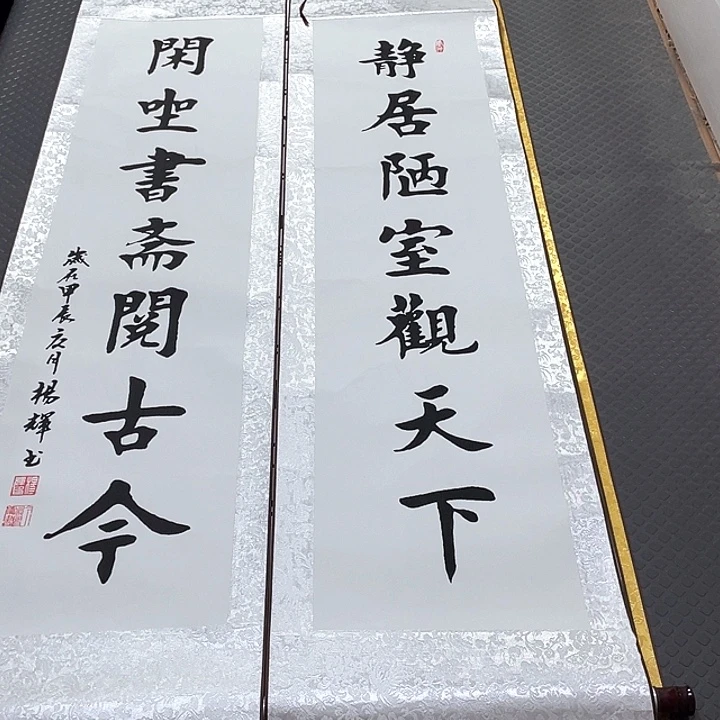 静居陋室觀天下
閑坐書斋閲古今
歲在甲辰之月楊輝书